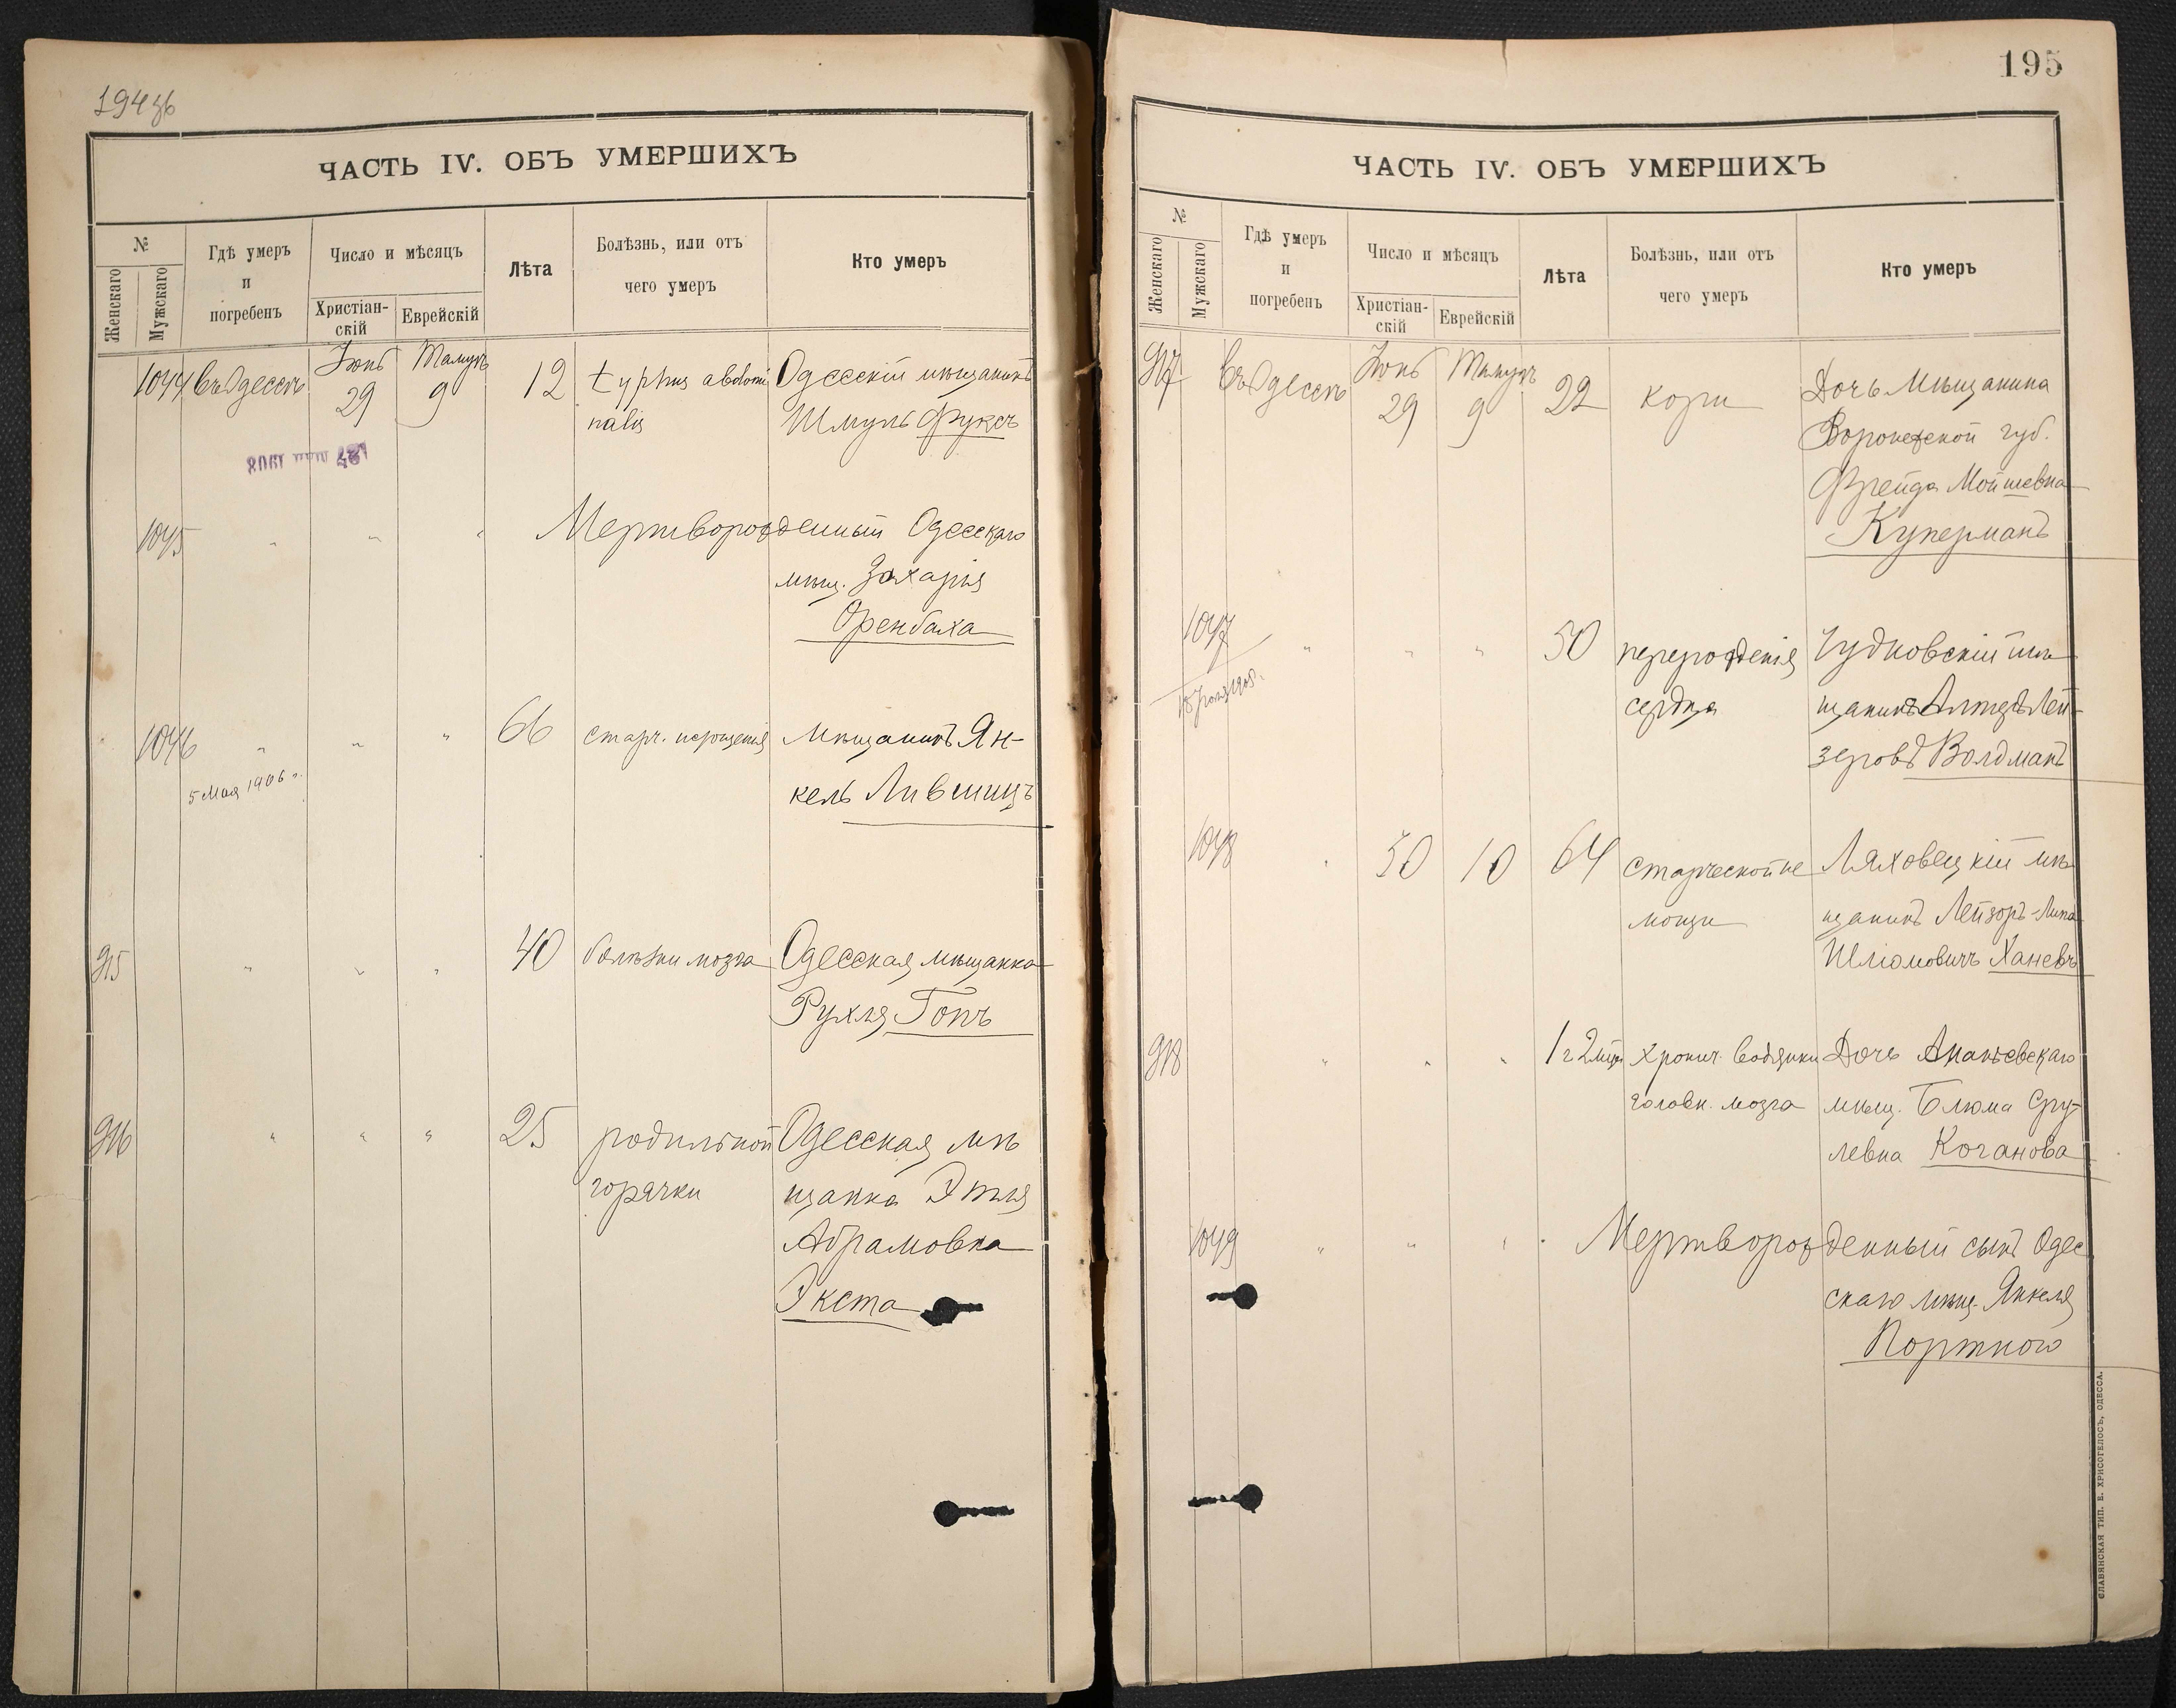 194 зб
ЧАСТЬ IV. ОБЪ УМЕРШИХЪ
№
Женскаго
Мужскаго
Гдѣ умеръ
и
погребенъ
Число и мѣсяцъ
Христіан-
скій
Еврейскій
Лѣта
Болѣзнь, или отъ
чего умеръ
Кто умеръ
1044 Въ Одессѣ Іюнь 29 Тамузъ 9 12 typhus abdomi Одесскій мѣщанинъ
nalis Шмуль Фуксъ
27 МАЯ 1908
1045 " " " Мертворожденный Одесскаго
мѣщ. Захарія
Оренбаха
1046 " " " 66 старч. истощенія Мѣщанинъ Ян-
5 Мая 1906 г. кель Лившицъ
915 " " " 40 болѣзни мозга Одесская мѣщанка
Рухля Гопъ
916 " " " 25 родильной Одесская мѣ
горячки щанка Этля
Абрамовна
Экста
195
ЧАСТЬ IV. ОБЪ УМЕРШИХЪ
№
Женскаго
Мужскаго
Гдѣ умеръ
и
погребенъ
Число и мѣсяцъ
Христіан-
скій
Еврейскій
Лѣта
Болѣзнь, или отъ
чего умеръ
Кто умеръ
917 Въ Одессѣ Іюнь 29 Тамузъ 9 22 кори Дочь Мѣщанина
Воронежской губ.
Фрейда Мойшевна
Куперманъ
1047 " " " 50 перерожденія Чудновскій мѣ
сердца щанинъ Алтеръ Лей-
зеровъ Волдманъ
1048 " 30 10 64 старческой не Ляховецкій мѣ
мощи щанинъ Лейзоръ-Липа
Шліомовичъ Ханевъ
918 " " " 1 г 2 мѣс хронич. водянки Дочь Ананьевскаго
головн. мозга мѣщ. Блюма Сру-
левна Коганова
1049 " " " Мертворожденный сынъ Одес
скаго мѣщ. Янкеля
Портного
СЛАВЯНСКАЯ ТИП. Е. ХРИСОГЕЛОСЪ, ОДЕССА.